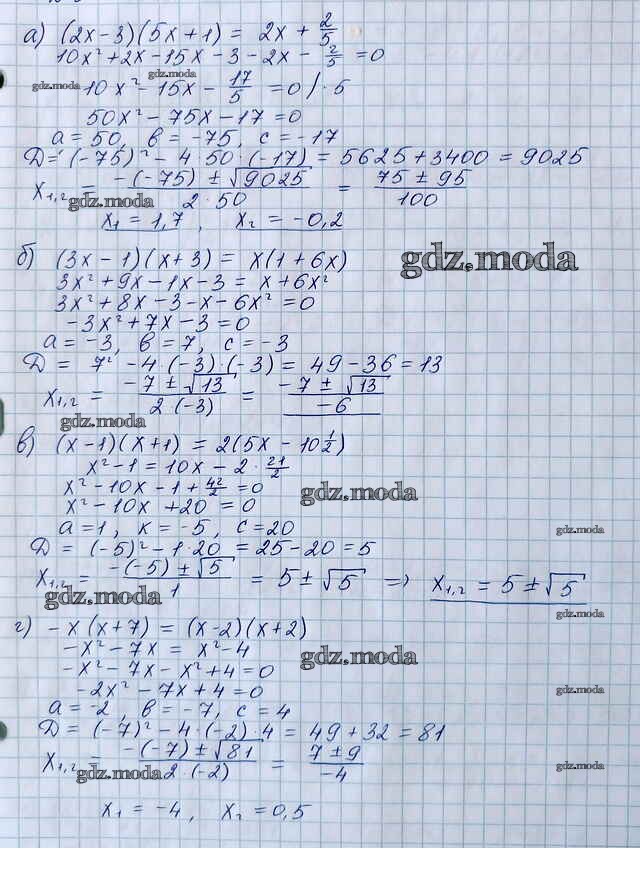 а) (2x-3)(5x+1) = 2x + 2/5
10x² + 2x - 15x - 3 - 2x - 2/5 = 0
gdz.moda
gdz.moda 10x² - 15x - 17/5 = 0 / · 5
50x² - 75x - 17 = 0
a = 50, b = -75, c = -17
D = (-75)² - 4·50·(-17) = 5625 + 3400 = 9025
x₁,₂ = (-(-75) ± √9025)/(2·50) = (75 ± 95)/100
gdz.moda
x₁ = 1,7, x₂ = -0,2
б) (3x - 1)(x + 3) = x(1 + 6x)
gdz.moda
3x² + 9x - 1x - 3 = x + 6x²
3x² + 8x - 3 - x - 6x² = 0
-3x² + 7x - 3 = 0
a = -3, b = 7, c = -3
D = 7² - 4·(-3)·(-3) = 49 - 36 = 13
x₁,₂ = (-7 ± √13)/(2(-3)) = (-7 ± √13)/(-6)
gdz.moda
в) (x-1)(x+1) = 2(5x - 10 1/2)
x² - 1 = 10x - 2 · 21/2
x² - 10x - 1 + 42/2 = 0
gdz.moda
x² - 10x + 20 = 0
a = 1, к = -5, c = 20
gdz.moda
D = (-5)² - 1·20 = 25 - 20 = 5
x₁,₂ = (-(-5) ± √5)/1 = 5 ± √5 => x₁,₂ = 5 ± √5
gdz.moda
gdz.moda
г) -x(x+7) = (x-2)(x+2)
-x² - 7x = x² - 4
gdz.moda
-x² - 7x - x² + 4 = 0
-2x² - 7x + 4 = 0
gdz.moda
a = -2, b = -7, c = 4
D = (-7)² - 4·(-2)·4 = 49 + 32 = 81
x₁,₂ = (-(-7) ± √81)/(2·(-2)) = (7 ± 9)/(-4)
gdz.moda
gdz.moda
x₁ = -4, x₂ = 0,5